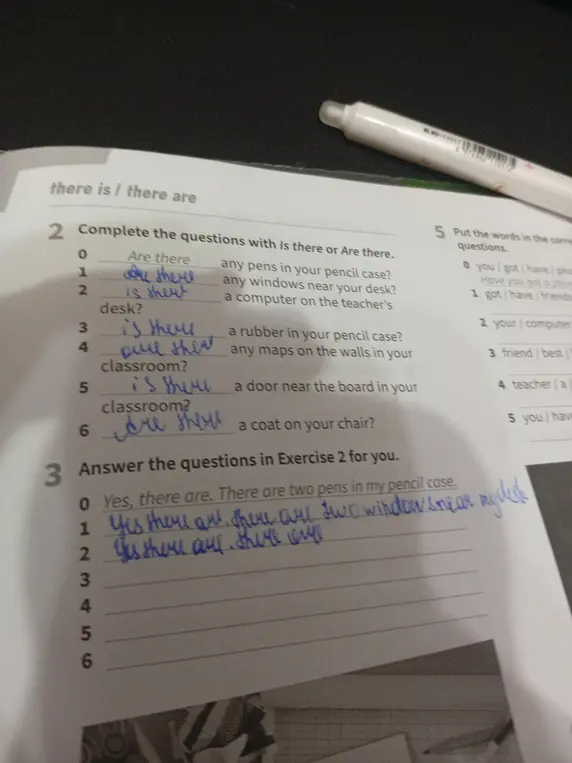 there is / there are
2 Complete the questions with Is there or Are there.
0 Are there any pens in your pencil case?
1 Are there any windows near your desk?
2 is there a computer on the teacher's
desk?
3 is there a rubber in your pencil case?
4 are there any maps on the walls in your
classroom?
5 is there a door near the board in your
classroom?
6 Are there a coat on your chair?
3 Answer the questions in Exercise 2 for you.
0 Yes, there are. There are two pens in my pencil case.
1 Yes there are. there are two windows near my desk
2 Yes there are. there are
3
4
5
6
5 Put the words in the
questions.
0 you / got / have /
Have you got a
1 got / have /
2 your / computer
3 friend / best /
4 teacher / a /
5 you /